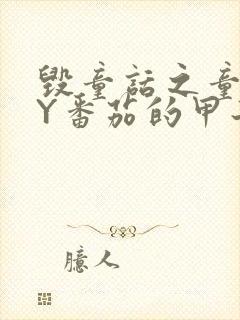 毁童话之童
Y番茄的甲
臆人